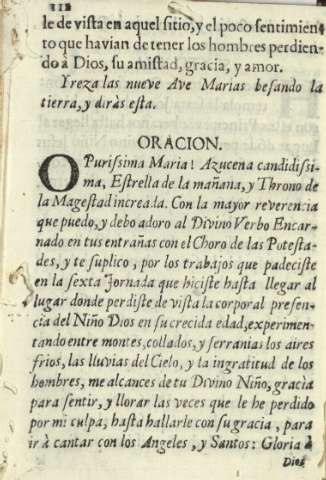 112
le de vista en aquel sitio, y el poco sentimien
to que havian de tener los hombres perdien
do à Dios, su amistad, gracia, y amor.
Y reza las nueve Ave Marias besando la
tierra, y diràs esta.
ORACION.
O Purissima Maria! Azucena candidissi-
ma, Estrella de la mañana, y Throno de
la Magestad increada. Con la mayor reverencia
que puedo, y debo adoro al Divino Verbo Encar-
nado en tus entrañas con el Choro de las Potesta-
des, y te suplico, por los trabajos que padeciste
en la sexta Jornada que hiciste hasta llegar al
lugar donde perdiste de vista la corporal presen-
cia del Niño Dios en su crecida edad, experimen-
tando entre montes, collados, y serranias los aires
frios, las lluvias del Cielo, y la ingratitud de los
hombres, me alcances de tu Divino Niño, gracia
para sentir, y llorar las veces que le he perdido
por mi culpa, hasta hallarle con su gracia, para
ir à cantar con los Angeles, y Santos: Gloria à
Dios